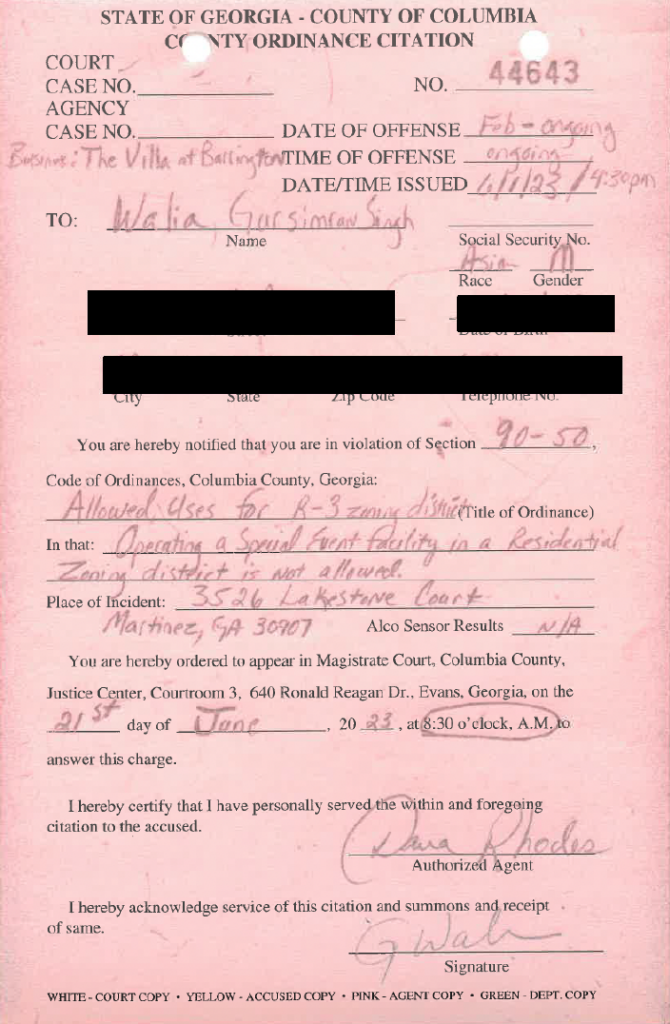 STATE OF GEORGIA - COUNTY OF COLUMBIA
COUNTY ORDINANCE CITATION
COURT
CASE NO. NO. 44643
AGENCY
CASE NO. DATE OF OFFENSE Feb - ongoing
Business: The Villa at Barrington TIME OF OFFENSE ongoing
DATE/TIME ISSUED 6/1/23 / 4:30pm
TO: Walia, Gursimran Singh
Name Social Security No.
Asian M
Race Gender
Date of Birth
City State Zip Code Telephone No.
You are hereby notified that you are in violation of Section 90-50,
Code of Ordinances, Columbia County, Georgia:
Allowed Uses for R-3 zoning district (Title of Ordinance)
In that: Operating a Special Event facility in a Residential
Zoning district is not allowed.
Place of Incident: 3526 Lakestone Court
Martinez, GA 30907 Alco Sensor Results N/A
You are hereby ordered to appear in Magistrate Court, Columbia County,
Justice Center, Courtroom 3, 640 Ronald Reagan Dr., Evans, Georgia, on the
21st day of June, 2023, at 8:30 o'clock, A.M. to
answer this charge.
I hereby certify that I have personally served the within and foregoing
citation to the accused.
Dana Rhodes
Authorized Agent
I hereby acknowledge service of this citation and summons and receipt
of same.
G Wal
Signature
WHITE - COURT COPY • YELLOW - ACCUSED COPY • PINK - AGENT COPY • GREEN - DEPT. COPY